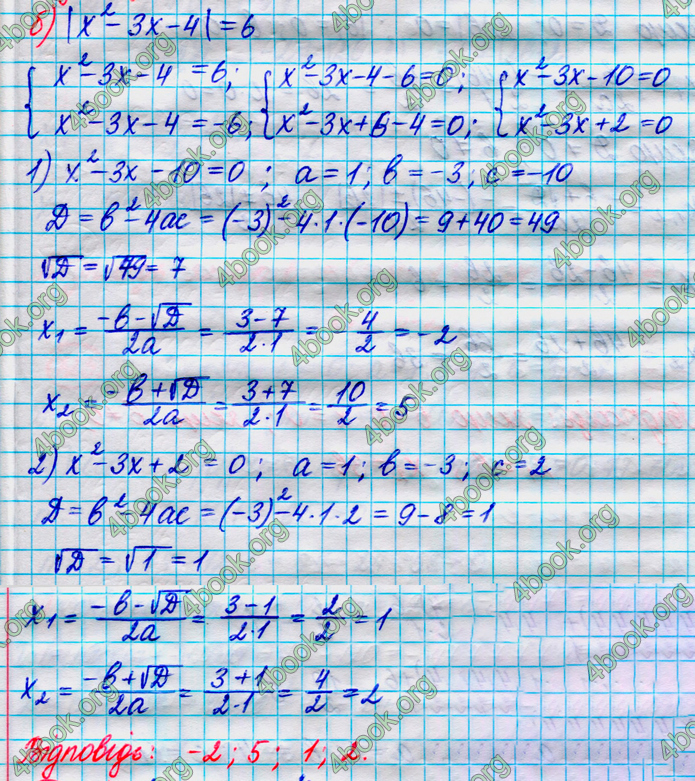 б) |x² - 3x - 4| = 6
{ x² - 3x - 4 = 6; { x² - 3x - 4 - 6 = 0; { x² - 3x - 10 = 0
x² - 3x - 4 = -6; x² - 3x + 6 - 4 = 0; x² - 3x + 2 = 0
1) x² - 3x - 10 = 0 ; a = 1; b = -3; c = -10
D = b² - 4ac = (-3)² - 4·1·(-10) = 9 + 40 = 49
√D = √49 = 7
x₁ = (-b - √D)/(2a) = (3 - 7)/(2·1) = - 4/2 = -2
x₂ = (-b + √D)/(2a) = (3 + 7)/(2·1) = 10/2 = 5
2) x² - 3x + 2 = 0 ; a = 1; b = -3; c = 2
D = b² - 4ac = (-3)² - 4·1·2 = 9 - 8 = 1
√D = √1 = 1
x₁ = (-b - √D)/(2a) = (3 - 1)/(2·1) = 2/2 = 1
x₂ = (-b + √D)/(2a) = (3 + 1)/(2·1) = 4/2 = 2
Відповідь: -2; 5; 1; 2.
4book.org